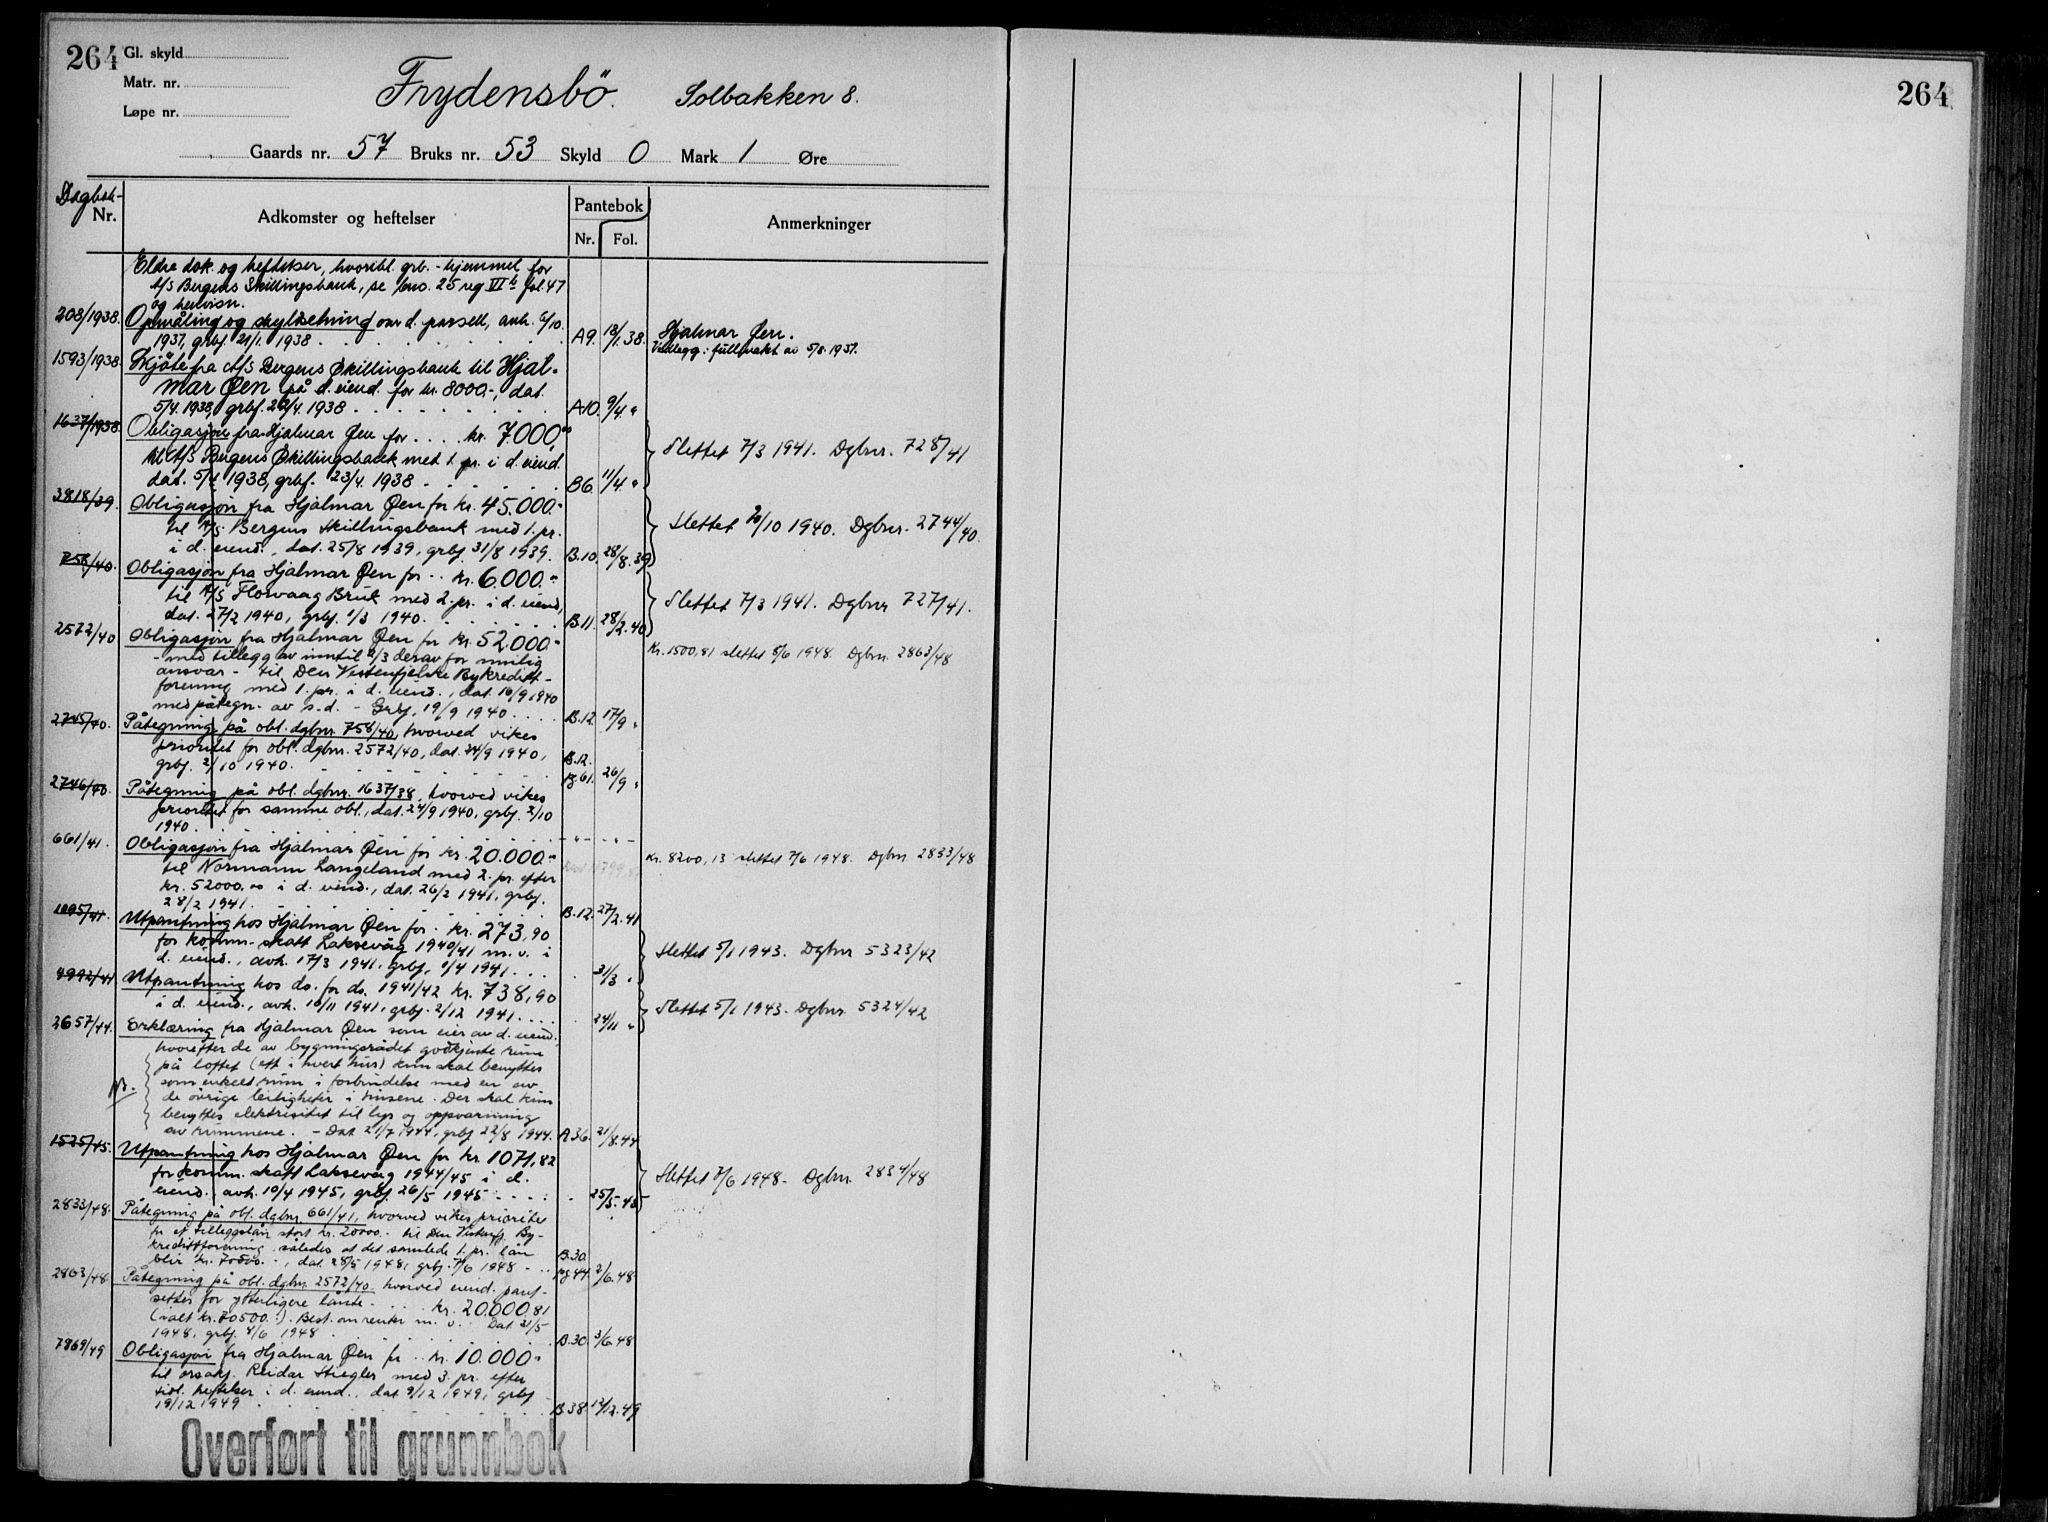 264
Gl. skyld
Matr. nr.
Løpe nr.
Frydensbö. Solbakken 8.
Gaards nr. 57 Bruks nr. 53 Skyld 0 Mark 1 Øre
Dagbok-
Nr.
Adkomster og heftelser
Pantebok
Nr. Fol.
Anmerkninger
Eldre dok. og heftelser, hvoribl. grb.-hjemmel for
A/S Bergens Skillingsbank, se bno. 25 reg VI b fol. 47
og henvisn.
208/1938. Opmåling og skyldsetning over d. parsell, avh. 6/10.
1937, grbf. 21/1. 1938 A9. 18/1.38. Hjalmar Øen.
Vedlegg: fullmakt av 5/8.1937.
1593/1938. Skjøte fra A/S Bergens Skillingsbank til Hjal-
mar Øen på d. eiend. for kr. 8000.-, dat.
5/4. 1938, grbf. 22/4. 1938 A10. 9/4. "
1637/1938. Obligasjon fra Hjalmar Øen for kr. 7000,00
til A/S Bergens Skillingsbank med 1. pr. i d. eiend.
dat. 5/4 1938, grbf. 23/4. 1938 B6. 11/4. "
Slettet 7/3 1941. Dgbnr. 728/41
3818/39. Obligasjon fra Hjalmar Øen for kr. 45.000.-
til A/S Bergens Skillingsbank med 1. pr.
i d. eiend., dat. 25/8 1939, grbf 31/8 1939. B.10. 28/8.39
Slettet 2/10 1940. Dgbnr. 2744/40.
758/40. Obligasjon fra Hjalmar Øen for kr. 6.000.-
til A/S Florvaag Bruk med 2. pr. i d. eiend,
dat. 27/2 1940, grbf. 1/3 1940. B.11. 28/2.40
Slettet 7/3 1941. Dgbnr 727/41.
2572/40 Obligasjon fra Hjalmar Øen for kr. 52.000.-
- med tillegg av inntil 2/3 derav for mulig
ansvar - til Den Vestenfjelske Bykreditt-
forening med 1. pr. i d. eiend., dat. 16/9 1940
med påtegn. av s.d. - Grbf. 19/9 1940 B.12. 17/9 "
Kr. 1500,81 slettet 8/6 1948. Dgbnr. 2863/48
2745/40. Påtegning på obl. dgbnr 758/40, hvorved vikes
prioritet for obl. dgbnr. 2572/40, dat. 24/9 1940,
grbf. 2/10 1940. B.12.
pg 61. 26/9 "
2746/40. Påtegning på obl. dgbnr. 1637/38, hvorved vikes
prioritet for samme obl., dat. 24/9 1940, grbf. 2/10
1940. - " - - " -
661/41. Obligasjon fra Hjalmar Øen for kr. 20.000.-
til Normann Langeland med 2. pr. efter
kr. 52000.00 i d. eiend., dat. 26/2 1941, grbf.
28/2 1941. B.12. 27/2.41
Kr. 8200,13 slettet 7/6 1948. Dgbnr 2833/48
1095/41. Utpantning hos Hjalmar Øen for kr. 273,90
for komm. skatt Laksevåg 1940/41 m.v. i
d. eiend., avh. 17/3 1941, grbf. 1/4 1941. 31/3 "
Slettet 5/1 1943. Dgbnr 5323/42
4992/41 Utpantning hos do. for do. 1941/42 kr. 738,90
i d. eiend., avh. 10/11 1941, grbf. 2/12 1941. 24/11 "
Slettet 5/1 1943. Dgbnr. 5324/42
2657/44. Erklæring fra Hjalmar Øen som eier av d. eiend.
hvorefter de av bygningsrådet godkjente rum
på loftet (ett i hvert hus) kun skal benyttes
som enkelt rum i forbindelse med en av
NB. de øvrige leiligheter i husene. Der skal kun
benyttes elektrisitet til lys og oppvarming
av rummene. - Dat 21/7 1944, grbf 22/8 1944. A36. 21/8.44
1525/45. Utpantning hos Hjalmar Øen for kr. 1071,82
for komm. skatt Laksevåg 1944/45 i d.
eiend. avh. 10/4 1945, grbf. 26/5 1945 25/5.45
Slettet 7/6 1948. Dgbnr. 2834/48
2833/48. Påtegning på obl. dgbnr. 661/41, hvorved vikes prioritet
for et tilleggslån stort kr. 20000.- til Den Vestenfj. By-
kredittforening, således at det samlede 1. pr. lån
blir kr. 70500.-, dat. 28/5 1948, grbf. 7/6 1948 B.30.
pg 44. 2/6.48
2863/48. Påtegning på obl. dgbnr 2572/40. hvorved eiend. pant-
settes for ytterligere lånte kr. 20.000,81
(ialt kr. 70500.-). Best. om renter m.v. Dat 31/5
1948, grbf. 8/6 1948 B.30. 3/6.48
7869/49 Obligasjon fra Hjalmar Øen for kr. 10.000.-
til orsakf. Reidar Stiegler med 3. pr. efter
tidl. heftelser i d. eiend., dat 9/12 1949, grbf
19/12 1949 B.38 14/12.49
Overført til grunnbok
264